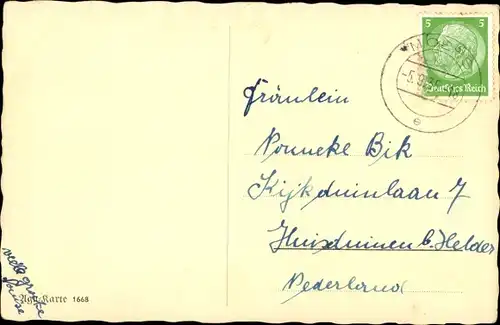 5 5
Deutsches Reich
Fräulein
Nonneke Bik
Kijkduinlaan 7
Huisduinen b. Helder
Nederland
viele grosse
Louise
Agfa-Karte 1668